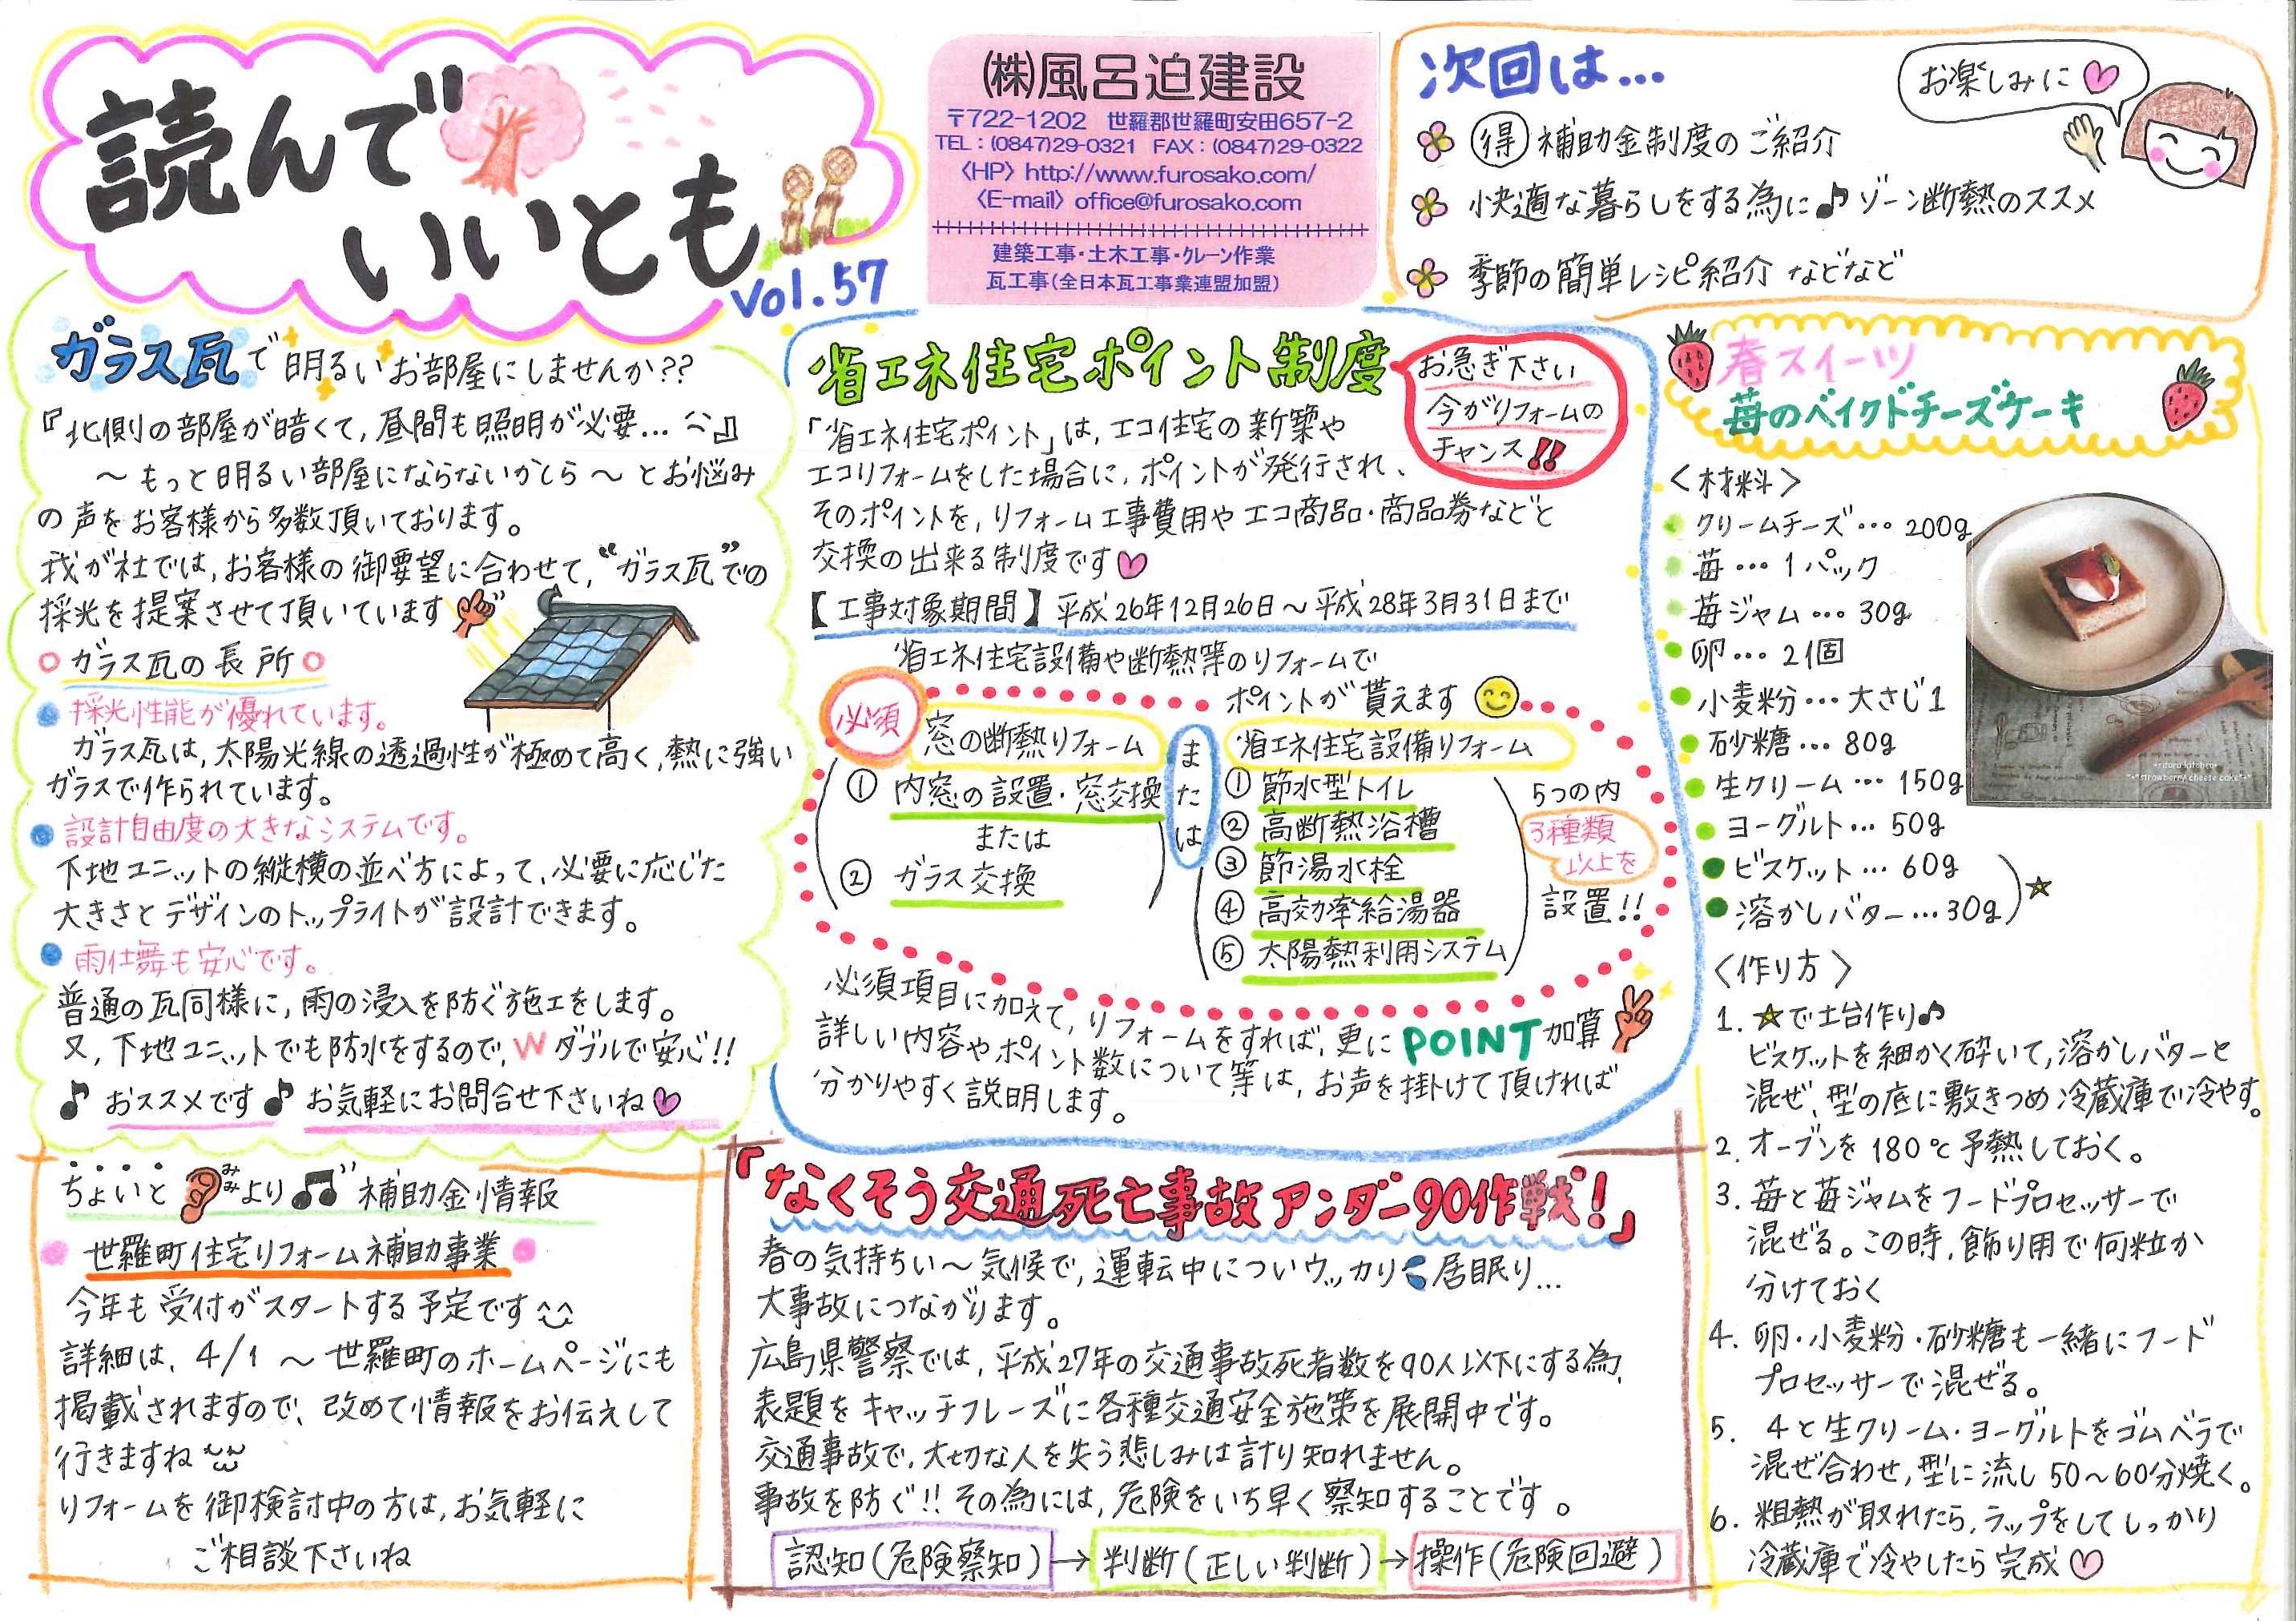 読んで
いいとも
Vol.57
㈱風呂迫建設
〒722-1202 世羅郡世羅町安田657-2
TEL：(0847)29-0321 FAX：(0847)29-0322
〈HP〉http://www.furosako.com/
〈E-mail〉office@furosako.com
建築工事・土木工事・クレーン作業
瓦工事(全日本瓦工事業連盟加盟)
次回は…
お楽しみに
得 補助金制度のご紹介
快適な暮らしをする為に♪ゾーン断熱のススメ
季節の簡単レシピ紹介 などなど
ガラス瓦で明るいお部屋にしませんか??
『北側の部屋が暗くて,昼間も照明が必要…』
～もっと明るい部屋にならないかしら～とお悩み
の声をお客様から多数頂いております。
我が社では,お客様の御要望に合わせて,“ガラス瓦”での
採光を提案させて頂いています
○ガラス瓦の長所○
採光性能が優れています。
ガラス瓦は,太陽光線の透過性が極めて高く,熱に強い
ガラスで作られています。
設計自由度の大きなシステムです。
下地ユニットの縦横の並べ方によって、必要に応じた
大きさとデザインのトップライトが設計できます。
雨仕舞も安心です。
普通の瓦同様に,雨の浸入を防ぐ施工をします。
又,下地ユニットでも防水をするので,Wダブルで安心!!
♪おススメです♪お気軽にお問合せ下さいね♡
省エネ住宅ポイント制度
お急ぎ下さい
今がリフォームの
チャンス!!
「省エネ住宅ポイント」は,エコ住宅の新築や
エコリフォームをした場合に,ポイントが発行され、
そのポイントを,リフォーム工事費用やエコ商品・商品券などと
交換の出来る制度です♡
【工事対象期間】平成26年12月26日～平成28年3月31日まで
省エネ住宅設備や断熱等のリフォームで
ポイントが貰えます
必須
窓の断熱リフォーム
① 内窓の設置・窓交換
または
② ガラス交換
または
省エネ住宅設備リフォーム
① 節水型トイレ
② 高断熱浴槽
③ 節湯水栓
④ 高効率給湯器
⑤ 太陽熱利用システム
5つの内
3種類
以上を
設置!!
必須項目に加えて,リフォームをすれば,更にPOINT加算
詳しい内容やポイント数について等は,お声を掛けて頂ければ
分かりやすく説明します。
春スイーツ
苺のベイクドチーズケーキ
＜材料＞
クリームチーズ… 200g
苺… 1パック
苺ジャム… 30g
卵… 2個
小麦粉… 大さじ1
砂糖… 80g
生クリーム… 150g
ヨーグルト… 50g
ビスケット… 60g
溶かしバター… 30g
☆
•ritoru kitchen•
strawberry cheese cake
＜作り方＞
1. ☆で土台作り♪
ビスケットを細かく砕いて,溶かしバターと
混ぜ,型の底に敷きつめ冷蔵庫で冷やす。
2. オーブンを180℃予熱しておく。
3. 苺と苺ジャムをフードプロセッサーで
混ぜる。この時,飾り用で何粒か
分けておく
4. 卵・小麦粉・砂糖も一緒にフード
プロセッサーで混ぜる。
5. 4と生クリーム・ヨーグルトをゴムベラで
混ぜ合わせ,型に流し50～60分焼く。
6. 粗熱が取れたら,ラップをしてしっかり
冷蔵庫で冷やしたら完成♡
ちょいとみみより♫補助金情報
世羅町住宅リフォーム補助事業
今年も受付がスタートする予定です
詳細は、4/1～世羅町のホームページにも
掲載されますので、改めて情報をお伝えして
行きますね
リフォームを御検討中の方は,お気軽に
ご相談下さいね
「なくそう交通死亡事故アンダー90作戦!」
春の気持ちい～気候で,運転中についウッカリ居眠り…
大事故につながります。
広島県警察では,平成27年の交通事故死者数を90人以下にする為,
表題をキャッチフレーズに各種交通安全施策を展開中です。
交通事故で,大切な人を失う悲しみは計り知れません。
事故を防ぐ!!その為には,危険をいち早く察知することです。
認知(危険察知)→判断(正しい判断)→操作(危険回避)